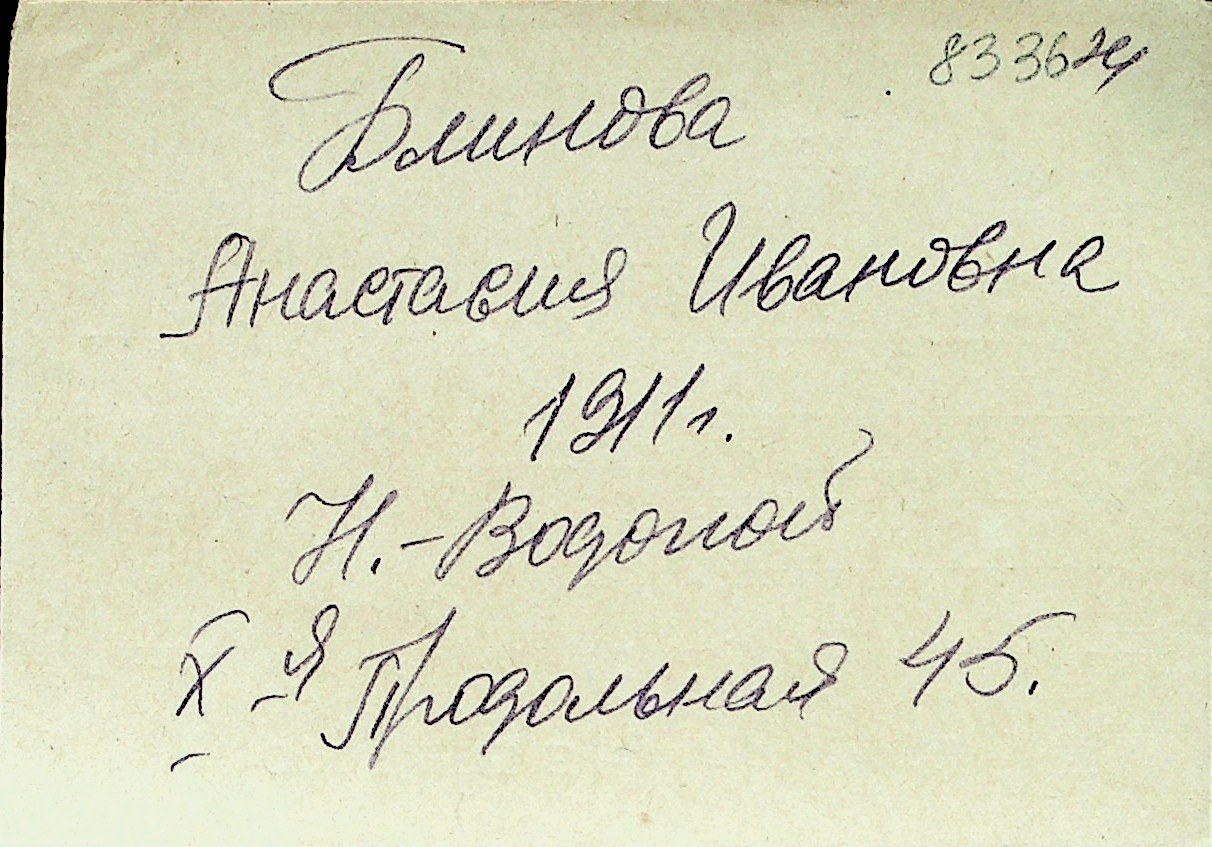 Блинова
Анастасия Ивановна
1911г.
Н.-Водопой
X-я Продольная 45.